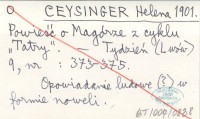 O CEYSINGER Helena 1901.
Powieść o Magórze z cyklu
"Tatry". — Tydzień (Lwów)
9, nr : 373-375.
Opowiadanie ludowe (?) w
formie noweli.